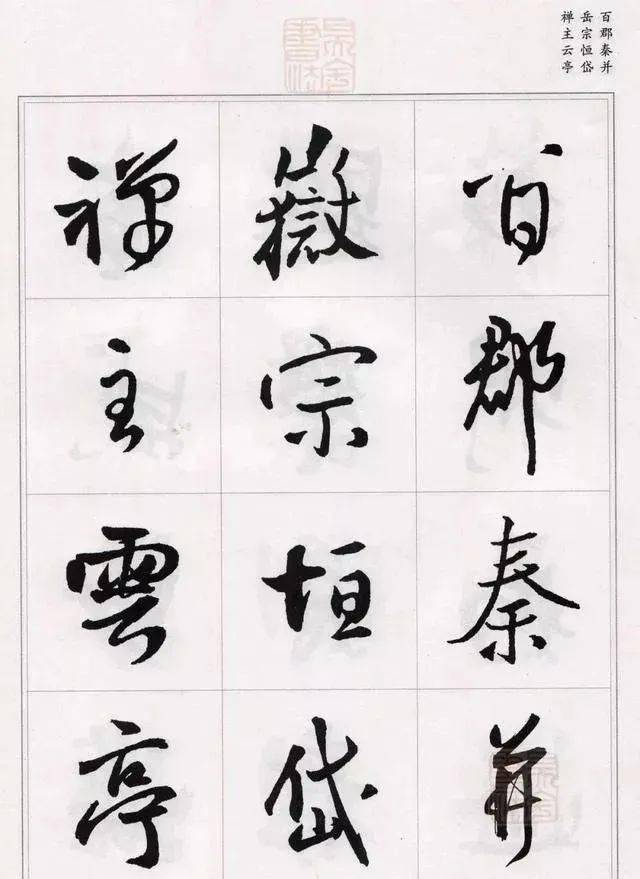 百郡秦并
岳宗恒岱
禅主云亭
百郡秦并
嶽宗恒岱
禪主雲亭